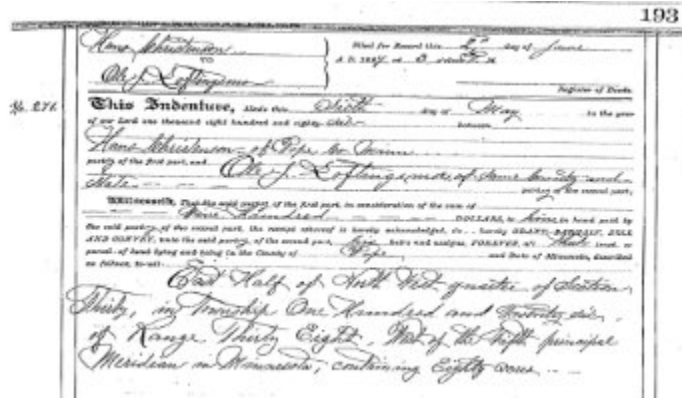 193
Hans Christenson
TO
Ole J. Loftingsmo
Filed for Record this 2nd day of June
A. D. 188 at 8 o'clock
Register of Deeds.
No. 276
This Indenture, Made this Sixth day of May in the year
of our Lord one thousand eight hundred and eighty six between
Hans Christenson of Pope Co Minn
party of the first part, and Ole J. Loftingsmo of same County and
State party of the second part,
Witnesseth, That the said party of the first part, in consideration of the sum of
Hundred DOLLARS, to him in hand paid by
the said party of the second part, the receipt whereof is hereby acknowledged, do hereby GRANT, BARGAIN, SELL
AND CONVEY, unto the said party of the second part, his heirs and assigns, FOREVER, all that tract or
parcel of land lying and being in the County of Pope and State of Minnesota, described
as follows, to-wit:
East Half of North West quarter of Section
Thirty, in Township One Hundred and Twenty six,
of Range Thirty Eight, West of the Fifth principal
Meridian in Minnesota, containing Eighty acres